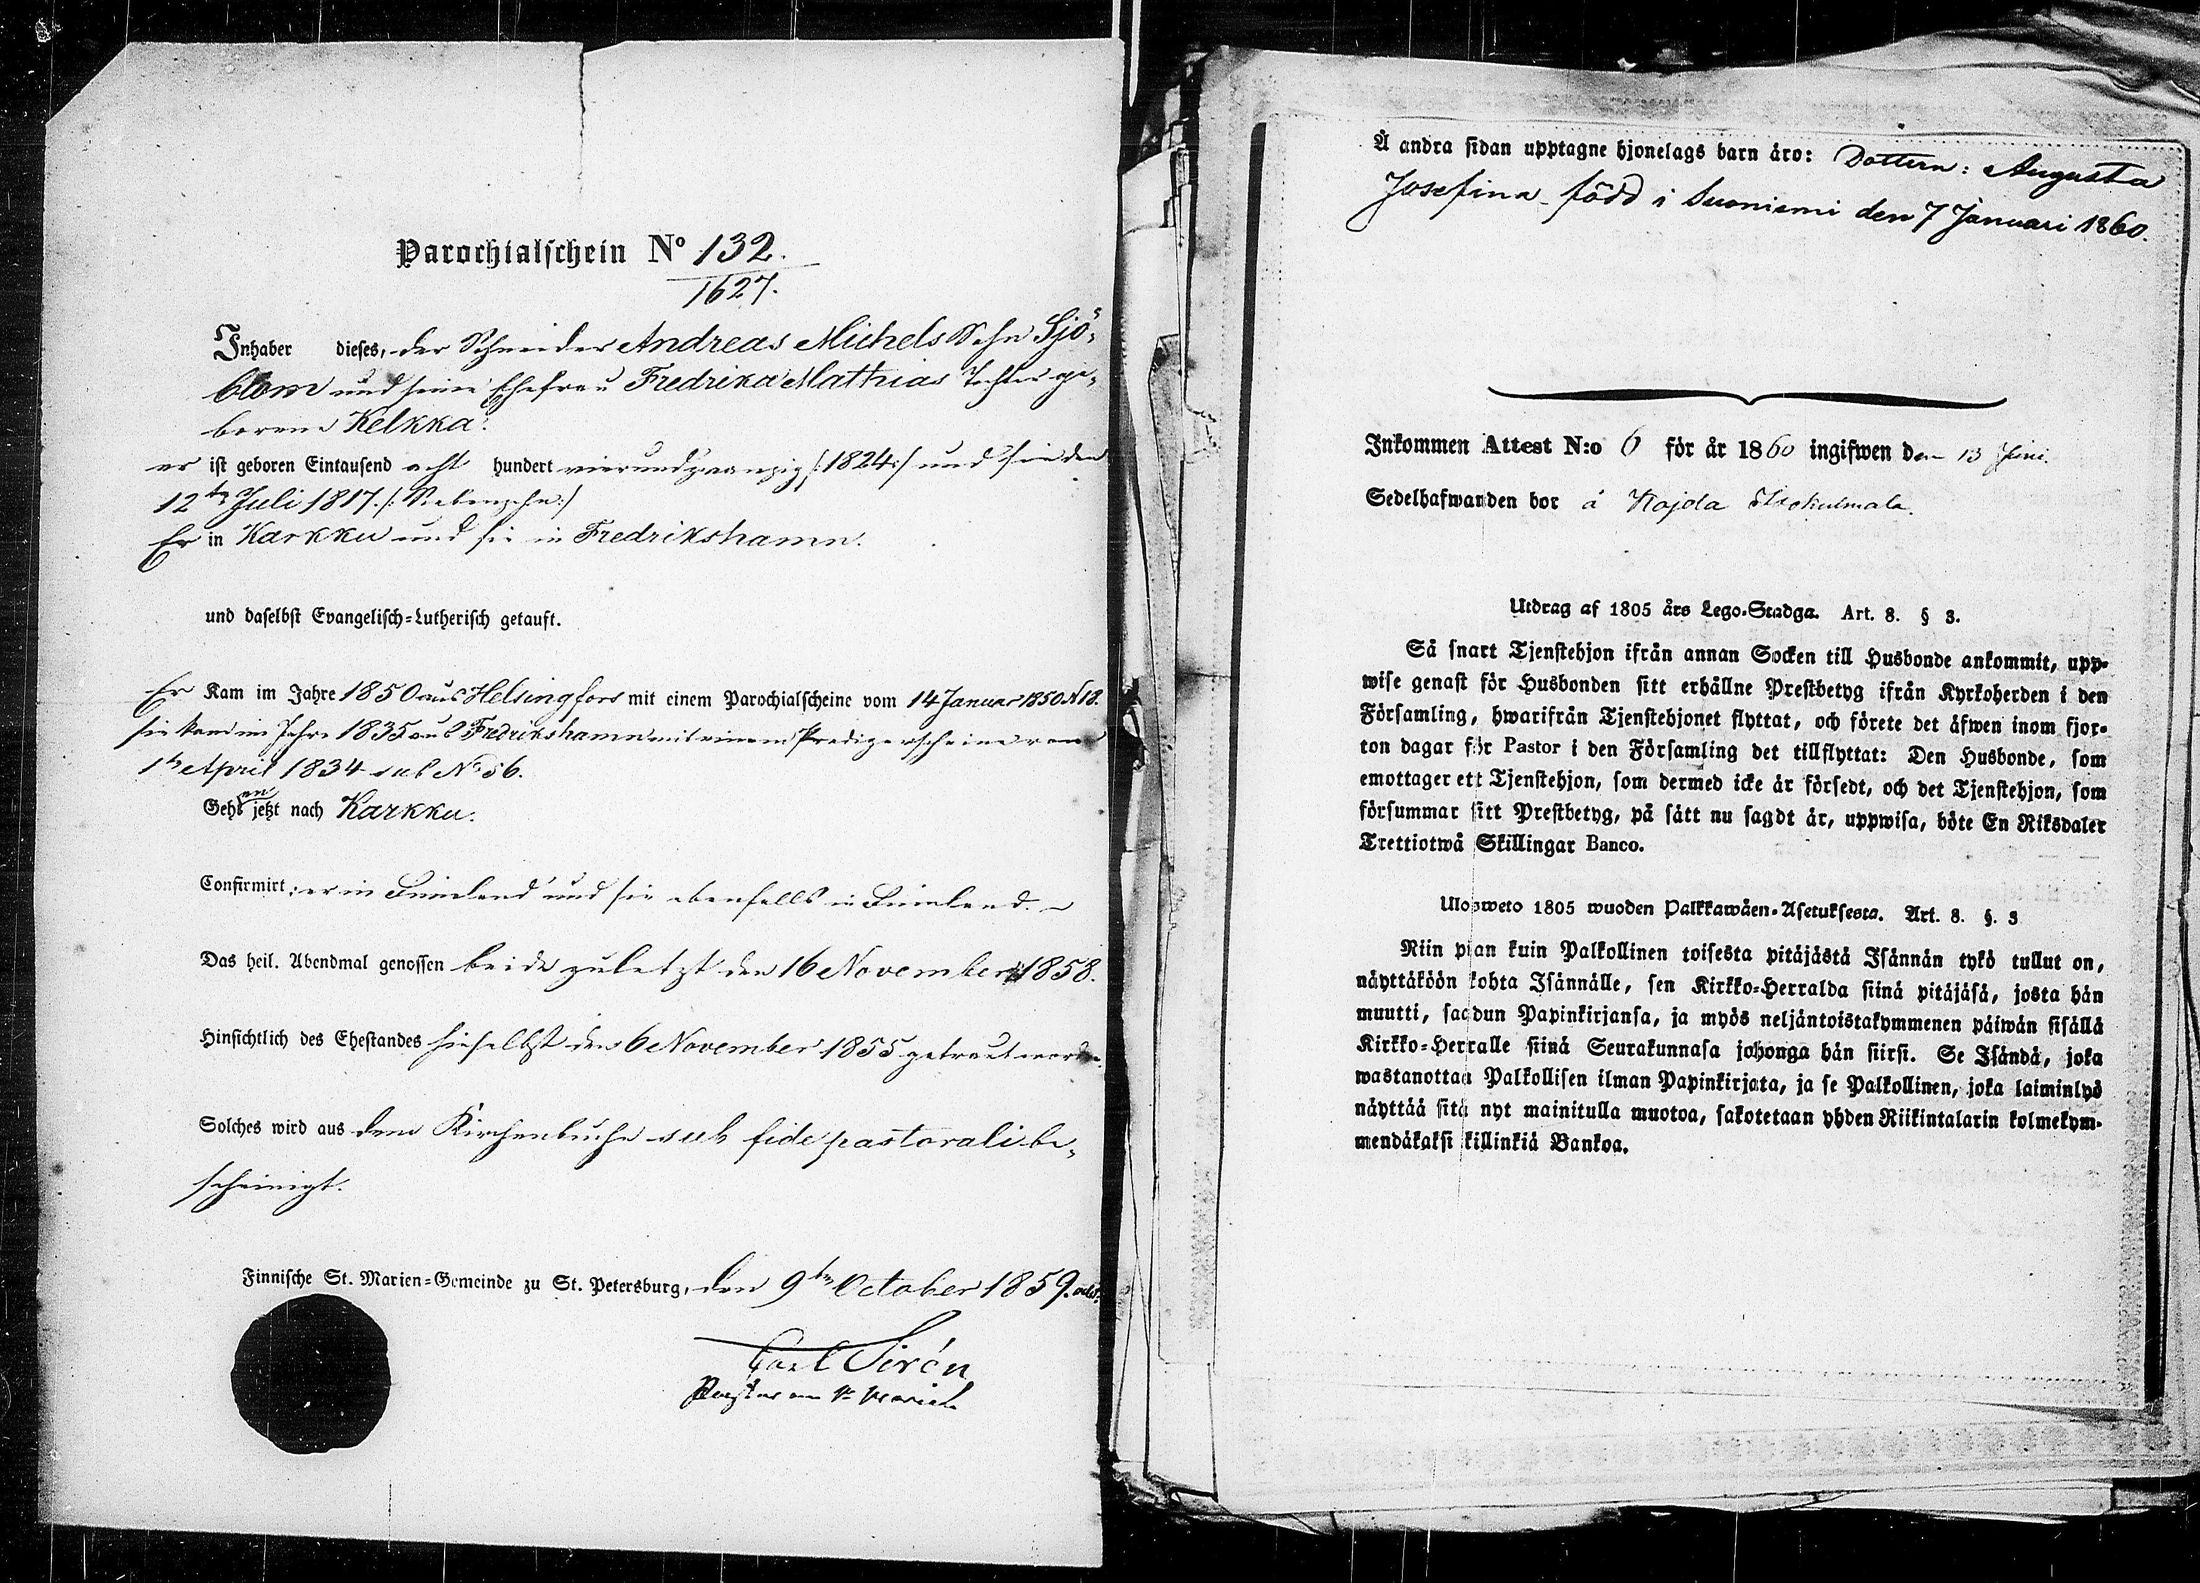 Parochialschein No 132.
1627.
Inhaber dieses, der Schneider Andreas Michels Sohn Sjö-
blom und seine Ehefrau Fredrika Mathias Tochter ge-
borene Kelkka.
er ist geboren Eintausend acht hundert vierundzwanzig /:1824:/ und sie den
12ten Juli 1817. /: Siebenzehn :/
Er in Karkku und sie in Fredrikshamn.
und daselbst Evangelisch-Lutherisch getauft.
Er Kam im Jahre 1850 aus Helsingfors mit einem Parochialscheine vom 14 Januar 1850 N 18.
sie kam im Jahre 1835 aus Fredrikshamn mit einem Predigerscheine vom
1ten April 1834 sub No 56.
Gehen jetzt nach Karkku.
Confirmirt: er in Finnland und sie ebenfalls in Finnland.
Das heil. Abendmal genossen beide zuletzt den 16 November 1858.
Hinsichtlich des Ehestandes hieselbst den 6 November 1855 getraut worden.
Solches wird aus dem Kirchenbuche sub fide pastorali be-
scheinigt.
Finnische St. Marien-Gemeinde zu St. Petersburg, den 9ten October 1859.
Carl Sirén
Pastor an St Marien
Å andra sidan upptagne hjonelags barn äro: Dottern: Augusta
Josefina född i Suoniemi den 7 Januari 1860.
Inkommen Attest N:o 6 för år 1860 ingifwen den 13 Juni.
Sedelhafwanden bor å Kojola
Utdrag af 1805 års Lego-Stadga. Art. 8. § 3.
Så snart Tjenstehjon ifrån annan Socken till Husbonde ankommit, upp-
wise genast för Husbonden sitt erhållne Prestbetyg ifrån Kyrkoherden i den
Församling, hwarifrån Tjenstehjonet flyttat, och förete det äfwen inom fjor-
ton dagar för Pastor i den Församling det tillflyttat: Den Husbonde, som
emottager ett Tjenstehjon, som dermed icke är försedt, och det Tjenstehjon, som
försummar sitt Prestbetyg, på sätt nu sagdt är, uppwisa, böte En Riksdaler
Trettiotwå Skillingar Banco.
Ulosweto 1805 wuoden Palkkawäen-Asetuksesta. Art. 8. §. 3
Niin pian kuin Palkollinen toisesta pitäjästä Isännän tykö tullut on,
näyttäköön kohta Isännälle, sen Kirkko-Herralda siinä pitäjäsä, josta hän
muutti, saadun Papinkirjansa, ja myös neljäntoistakymmenen päiwän sisällä
Kirkko-Herralle siinä Seurakunnasa johonga hän siirsi. Se Isändä, joka
wastanottaa Palkollisen ilman Papinkirjata, ja se Palkollinen, joka laiminlyö
näyttää sitä nyt mainitulla muotoa, sakotetaan yhden Riikintalarin kolmekym-
mendäkaksi killinkiä Bankoa.